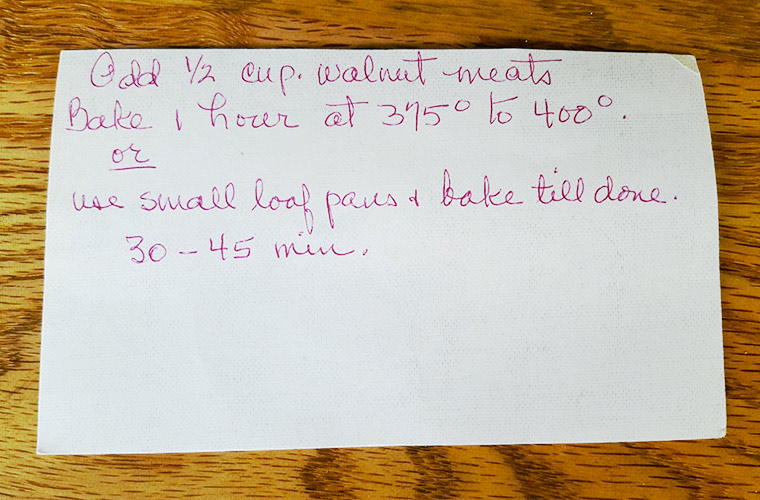 Add 1/2 cup. walnut meats
Bake 1 hour at 375° to 400°.
or
use small loaf pans & bake till done.
30 - 45 min.